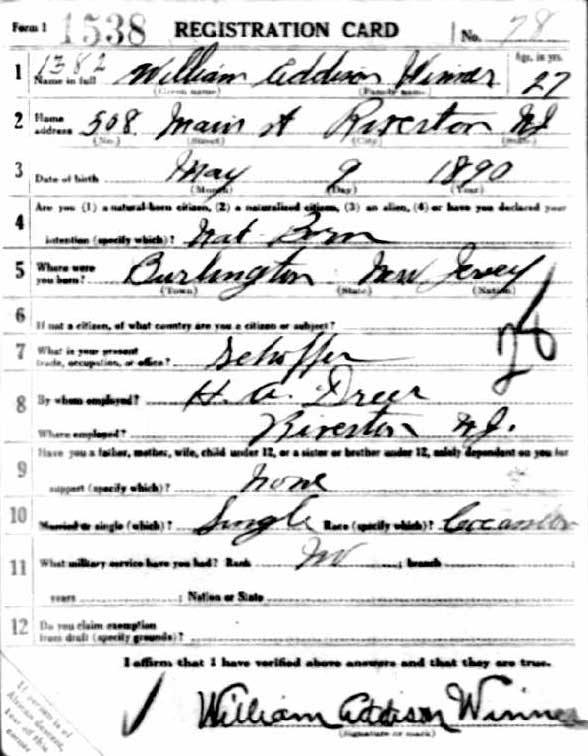 Form 1 1538 REGISTRATION CARD No. 78
1382
1 Name in full William Addison Winner Age, in yrs. 27
(Given name) (Family name)
2 Home address 508 Main St Riverton NJ
(No.) (Street) (City) (State)
3 Date of birth May 9 1890
(Month) (Day) (Year)
4 Are you (1) a natural-born citizen, (2) a naturalized citizen, (3) an alien, (4) or have you declared your
intention (specify which)? Nat Born
5 Where were you born? Burlington New Jersey
(Town) (State) (Nation)
6 If not a citizen, of what country are you a citizen or subject?
7 What is your present trade, occupation, or office? Schoffer
8 By whom employed? H. A. Dreer
Where employed? Riverton N.J.
9 Have you a father, mother, wife, child under 12, or a sister or brother under 12, solely dependent on you for
support (specify which)? None
10 Married or single (which)? Single Race (specify which)?
11 What military service have you had? Rank No ; branch
years ; Nation or State
12 Do you claim exemption from draft (specify grounds)?
I affirm that I have verified above answers and that they are true.
William Addison Winner
(Signature or mark)
If person is of
African descent,
tear off this
corner